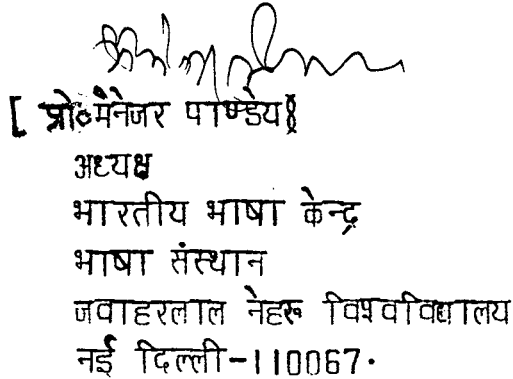 [ प्रो०मैनेजर पाण्डेय ]
अध्यक्ष
भारतीय भाषा केन्द्र
भाषा संस्थान
जवाहरलाल नेहरू विश्वविद्यालय
नई दिल्ली-110067.